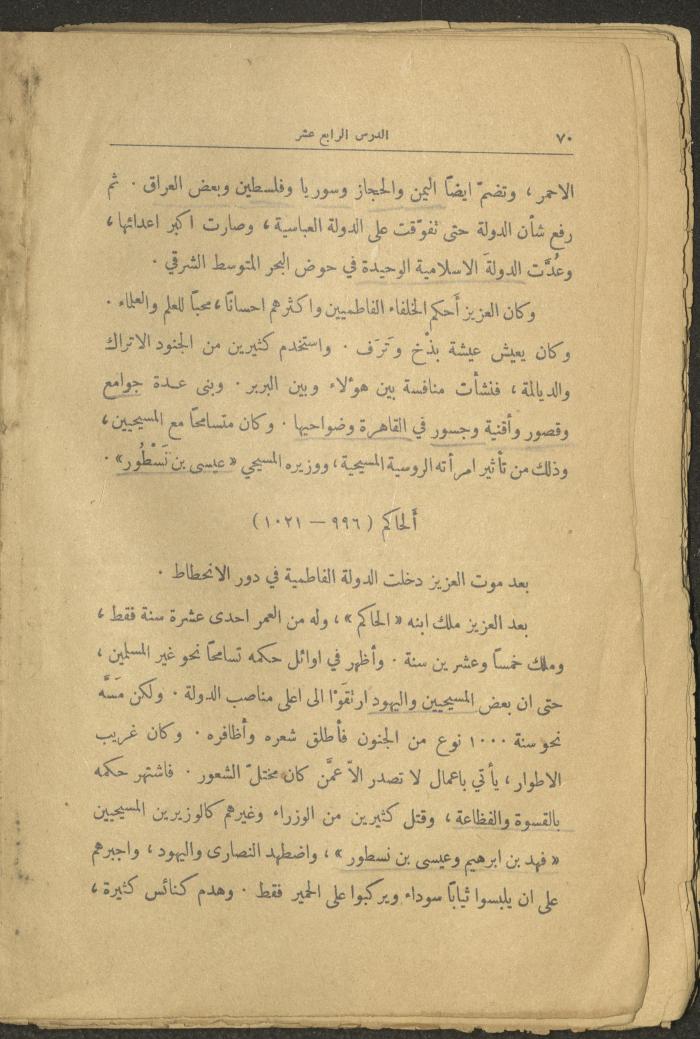 ٧٠
الدرس الرابع عشر
الاحمر ، وتضمّ ايضاً اليمن والحجاز وسوريا وفلسطين وبعض العراق . ثم
رفع شأن الدولة حتى تفوّقت على الدولة العباسية ، وصارت اكبر اعدائها ،
وعُدَّت الدولةَ الاسلامية الوحيدة في حوض البحر المتوسط الشرقي .
وكان العزيز أَحكم الخلفاء الفاطميين واكثرهم احساناً ، محباً للعلم والعلماء .
وكان يعيش عيشة بذْخ وتَرَف . واستخدم كثيرين من الجنود الاتراك
والديالمة ، فنشأت منافسة بين هؤلاء وبين البربر . وبنى عدة جوامع
وقصور وأقنية وجسور في القاهرة وضواحيها . وكان متسامحاً مع المسيحيين ،
وذلك من تأثير امرأته الروسية المسيحية ، ووزيره المسيحي « عيسى بن نَسْطُور » .
أَلحاكم ( ٩٩٦ – ١٠٢١ )
بعد موت العزيز دخلت الدولة الفاطمية في دور الانحطاط .
بعد العزيز ملك ابنه « الحاكم » ، وله من العمر احدى عشرة سنة فقط ،
وملك خمساً وعشرين سنة . وأظهر في اوائل حكمه تسامحاً نحو غير المسلمين ،
حتى ان بعض المسيحيين واليهود ارتقَوْا الى اعلى مناصب الدولة . ولكن مَسَّه
نحو سنة ١٠٠٠ نوع من الجنون فأطلق شعره وأظافره . وكان غريب
الاطوار ، يأتي باعمال لا تصدر الاّ عمَّن كان مختلّ الشعور . فاشتهر حكمه
بالقسوة والفظاعة ، وقتل كثيرين من الوزراء وغيرهم كالوزيرين المسيحيين
« فهد بن ابرهيم وعيسى بن نسطور » ، واضطهد النصارى واليهود ، واجبرهم
على ان يلبسوا ثياباً سوداء ويركبوا على الحمير فقط . وهدم كنائس كثيرة ،